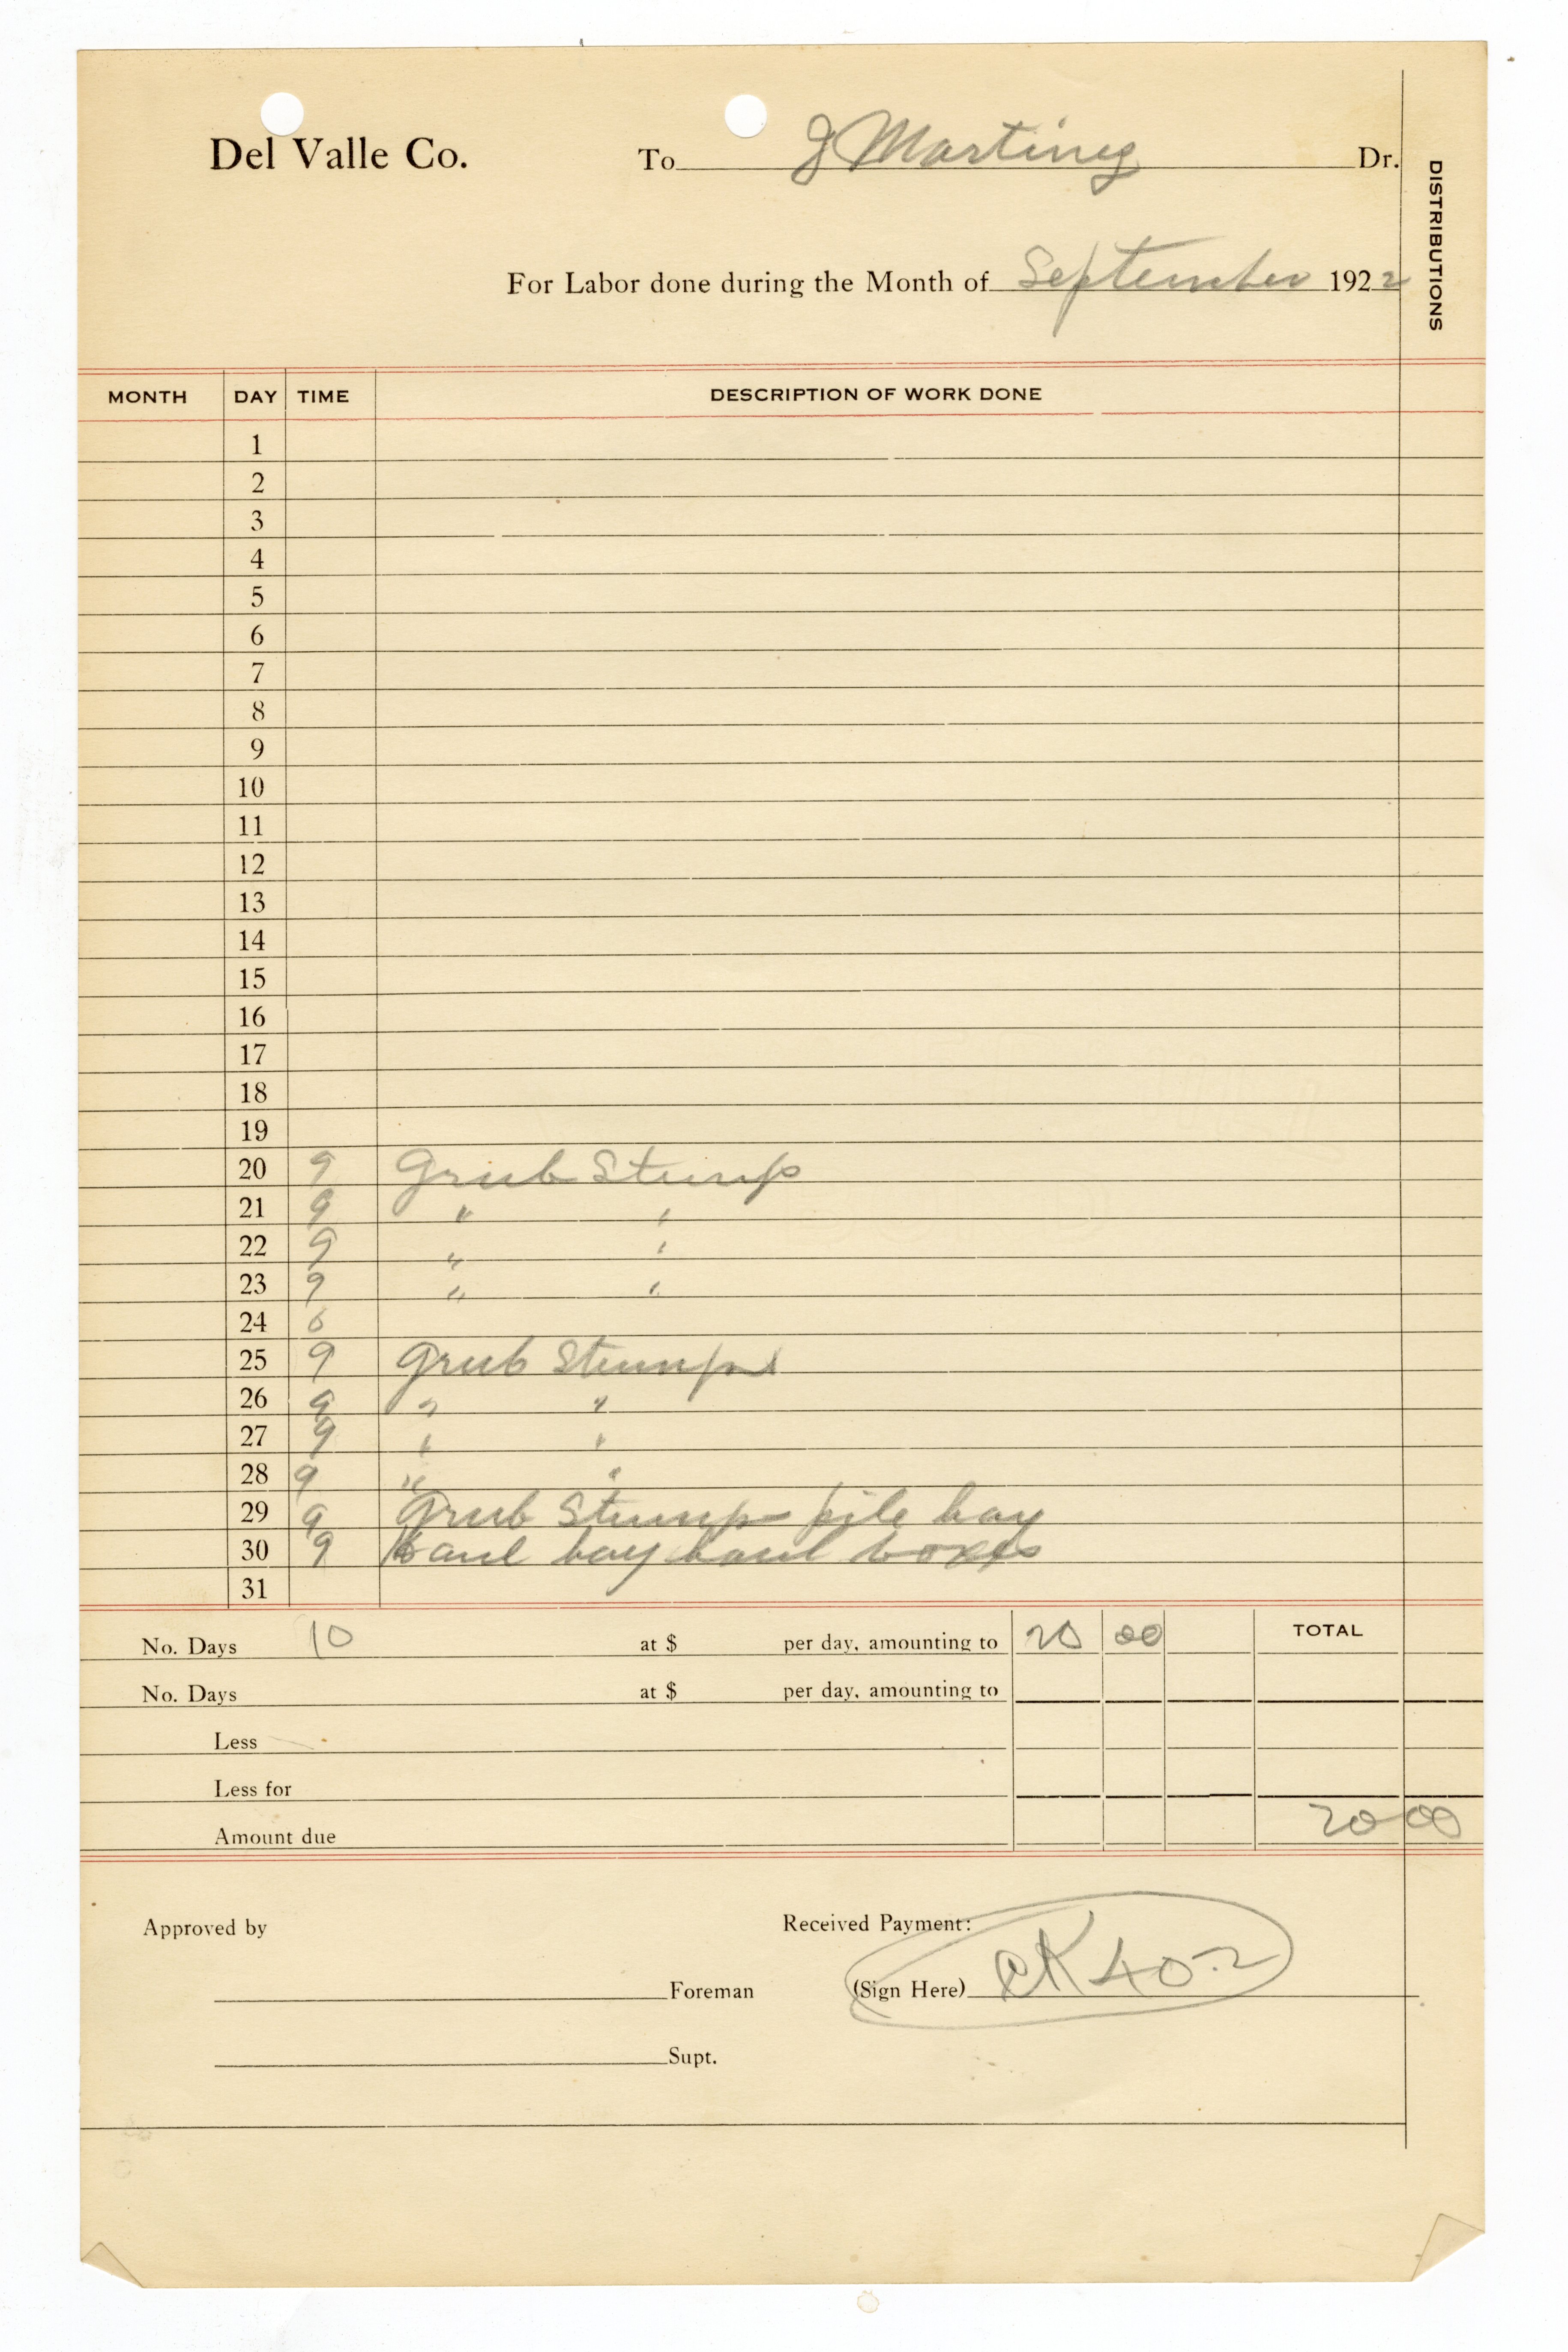 Del Valle Co. To J Martinez Dr.
DISTRIBUTIONS
For Labor done during the Month of September 1922
MONTH DAY TIME DESCRIPTION OF WORK DONE
1
2
3
4
5
6
7
8
9
10
11
12
13
14
15
16
17
18
19
20 9 Grub Stump
21 9 " "
22 9 " "
23 9 " "
24 0
25 9 Grub Stumps
26 9 " "
27 9 " "
28 9 " "
29 9 Grub Stump pile hay
30 9 haul hay haul boxes
31
No. Days 10 at $ per day, amounting to 20 00 TOTAL
No. Days at $ per day, amounting to
Less
Less for
Amount due 20 00
Approved by Received Payment:
Foreman (Sign Here) CK 402
Supt.